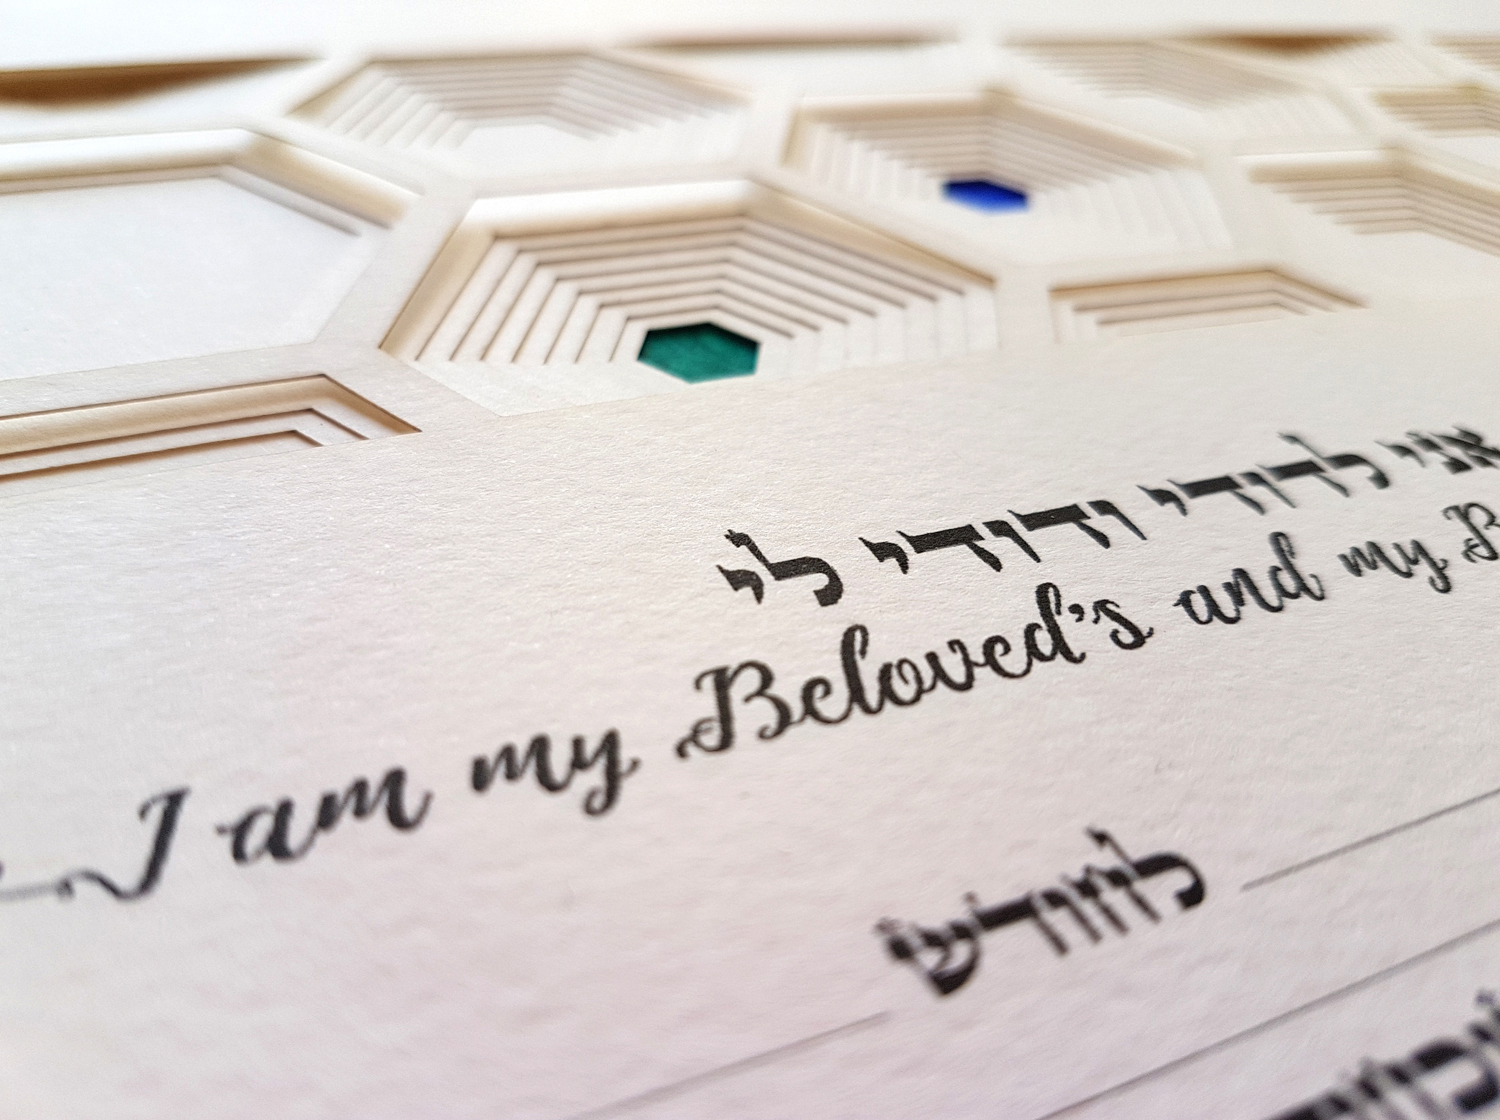 אני לדודי ודודי לי
I am my Beloved's and my
לחודש